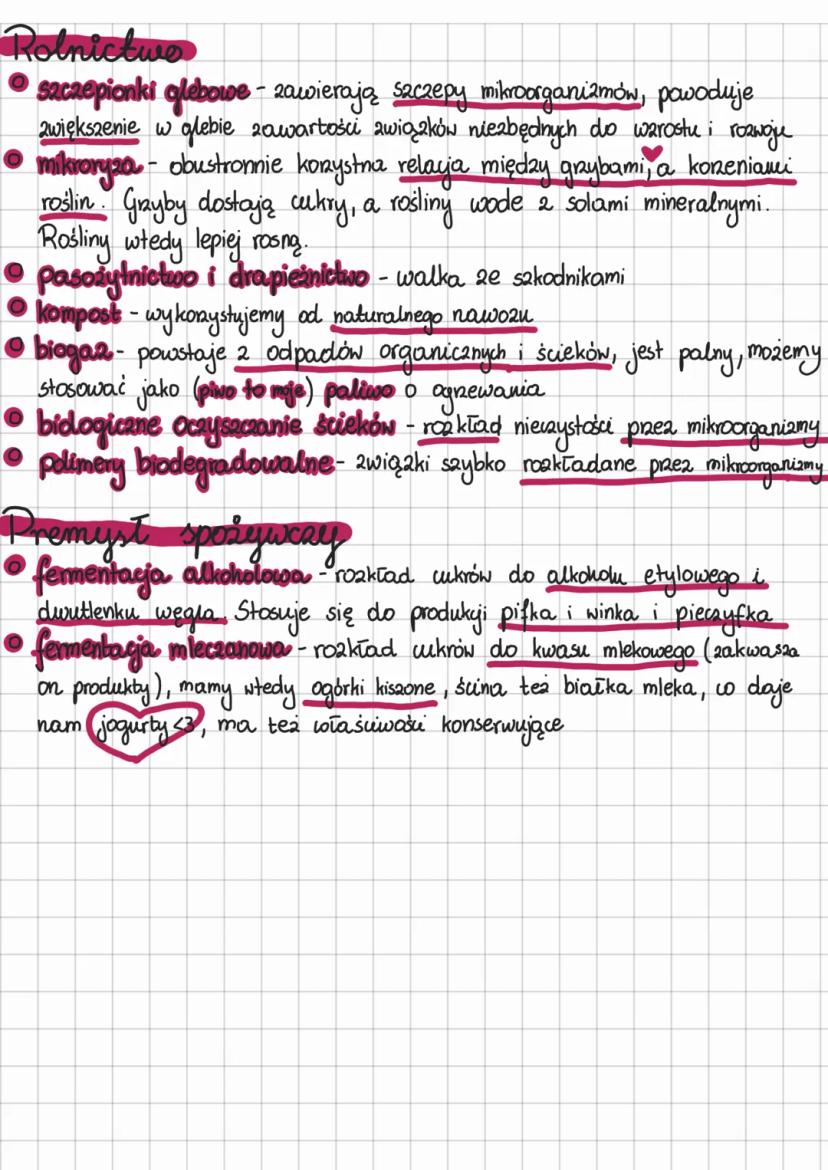 Rolnictwo
szczepionki glebowe - zawierają szczepy mikroorganizmów, powoduje
zwiększenie w glebie zawartości związków niezbędnych do wzrostu i rozwoju
mikroryza - obustronnie korzystna relacja między grzybami, a korzeniami
roślin. Grzyby dostają cukry, a rośliny wode z solami mineralnymi.
Rośliny wtedy lepiej rosną.
pasożytnictwo i drapieżnictwo - walka ze szkodnikami
kompost - wykorzystujemy od naturalnego nawozu
biogaz - powstaje z odpadów organicznych i ścieków, jest palny, możemy
stosować jako (piwo to moje) paliwo o ogrzewania
biologiczne oczyszczanie ścieków - rozkład nieczystości przez mikroorganizmy
polimery biodegradowalne - związki szybko rozkładane przez mikroorganizmy
Przemysł spożywczy
fermentacja alkoholowa - rozkład cukrów do alkoholu etylowego i
dwutlenku węgla. Stosuje się do produkcji pifka i winka i pieczyfka
fermentacja mleczanowa - rozkład cukrów do kwasu mlekowego (zakwasza
on produkty), mamy wtedy ogórki kiszone, ścina też białka mleka, co daje
nam jogurty <3, ma też właściwości konserwujące